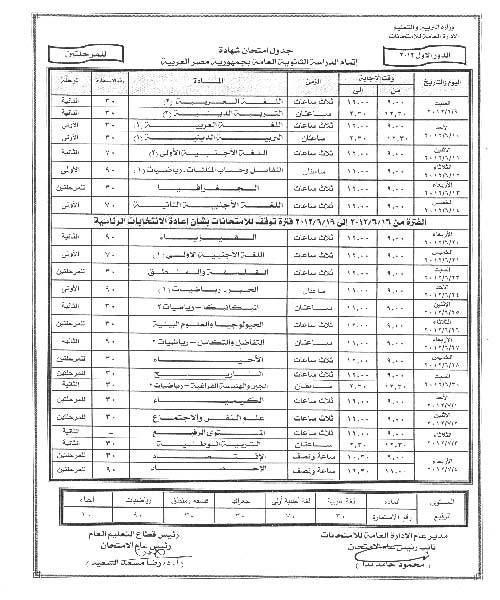 وزارة التربية والتعليم
الادارة العامة للامتحانات
الدور الاول ٢٠١٢
جدول امتحان شهادة
إتمام الدراسة الثانوية العامة بجمهورية مصر العربية
للمرحلتين
اليوم والتاريخ وقت الاجابة من إلى الزمن المادة مرحلة
السبت ٢٠١٢/٦/٩ ٩.٠٠ ١٢.٠٠ ثلاث ساعات اللغة العربية (٢) ٣٠ الثانية
١٢.٣٠ ٢.٣٠ ساعتان التربية الدينية (٢) ٣٠ الثانية
الأحد ٢٠١٢/٦/١٠ ٩.٠٠ ١٢.٠٠ ثلاث ساعات اللغة العربية (١) ٣٠ الأولى
١٢.٣٠ ٢.٣٠ ساعتان التربية الدينية (١) ٣٠ الأولى
الاثنين ٢٠١٢/٦/١١ ٩.٠٠ ١٢.٠٠ ثلاث ساعات اللغة الاجنبية الأولى (٢) ٧٠ الثانية
الثلاثاء ٢٠١٢/٦/١٢ ٩.٠٠ ١١.٠٠ ساعتان التفاضل وحساب المثلثات رياضيات (١) ٩٠ الأولى
الأربعاء ٢٠١٢/٦/١٣ ٩.٠٠ ١٢.٠٠ ثلاث ساعات الجغرافيا ٣٠ للمرحلتين
الخميس ٢٠١٢/٦/١٤ ٩.٠٠ ١٢.٠٠ ثلاث ساعات اللغة الأجنبية الثانية ٧٠ الأولى
الفترة من ٢٠١٢/٦/١٦ الى ٢٠١٢/٦/١٩ فترة توقف للامتحانات بشأن إعادة الانتخابات الرئاسية
الأربعاء ٢٠١٢/٦/٢٠ ٩.٠٠ ١٢.٠٠ ثلاث ساعات الفيزياء ٩٠ الثانية
الخميس ٢٠١٢/٦/٢١ ٩.٠٠ ١٢.٠٠ ثلاث ساعات اللغة الاجنبية الأولى (١) ٧٠ الأولى
السبت ٢٠١٢/٦/٢٣ ٩.٠٠ ١٢.٠٠ ثلاث ساعات الفلسفة والمنطق ٣٠ للمرحلتين
الأحد ٢٠١٢/٦/٢٤ ٩.٠٠ ١١.٠٠ ساعتان الجبر رياضيات (١) ٩٠ الأولى
الاثنين ٢٠١٢/٦/٢٥ ٩.٠٠ ١١.٠٠ ساعتان الميكانيكا - رياضيات ٢ ٣٠ الثانية
الثلاثاء ٢٠١٢/٦/٢٦ ٩.٠٠ ١٢.٠٠ ثلاث ساعات الجيولوجيا والعلوم البيئية ٣٠ للمرحلتين
الأربعاء ٢٠١٢/٦/٢٧ ٩.٠٠ ١١.٠٠ ساعتان التفاضل والتكامل - رياضيات ٢ ٩٠ الثانية
الخميس ٢٠١٢/٦/٢٨ ٩.٠٠ ١٢.٠٠ ثلاث ساعات الأحياء ٣٠ للمرحلتين
السبت ٢٠١٢/٦/٣٠ ٩.٠٠ ١٢.٠٠ ثلاث ساعات التاريخ ٣٠ للمرحلتين
١٢.٣٠ ٢.٣٠ ساعتان الجبر والهندسة الفراغية - رياضيات ٢ ٣٠ الثانية
الأحد ٢٠١٢/٧/١ ٩.٠٠ ١٢.٠٠ ثلاث ساعات الكيمياء ٣٠ للمرحلتين
الاثنين ٢٠١٢/٧/٢ ٩.٠٠ ١٢.٠٠ ثلاث ساعات علم النفس والاجتماع ٣٠ للمرحلتين
الثلاثاء ٢٠١٢/٧/٣ ٩.٠٠ ١٢.٠٠ ثلاث ساعات المستوى الرفيع - الثانية
١٢.٣٠ ٢.٣٠ ساعتان التربية الوطنية ٣٠ الثانية
الأربعاء ٢٠١٢/٧/٤ ٩.٠٠ ١٠.٣٠ ساعة ونصف الاقتصاد ٣٠ للمرحلتين
١١.٠٠ ١٢.٣٠ ساعة ونصف الإحصاء ٩٠ للمرحلتين
المستوى المادة لغة عربية لغة أجنبية أولى جغرافيا فلسفة ومنطق رياضيات أحياء
الرفيع رقم الاستمارة ٣٠ ٧٠ ٣٠ ٣٠ ٩٠ ٣٠
مدير عام الادارة العامة للامتحانات
نائب رئيس عام الامتحان
رئيس قطاع التعليم العام
رئيس عام الامتحان
( محمود حامد ندا )
( أ.د/ رضا مسعد السعيد )